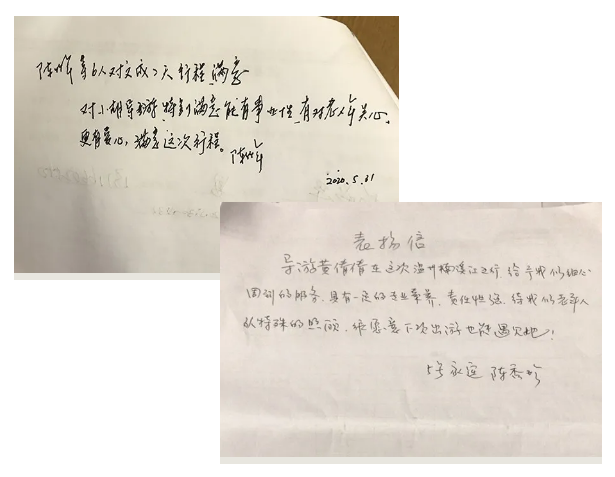 等6人对文成二天行程,满意
对小胡导游,特别满意,能有事业性,有对老人年关心,
更有爱心,满意这次行程。
2020.5.31
表扬信
导游黄倩倩在这次温州楠溪江之行,给予我们细心
周到的服务,具有一定的专业素养,责任性强,待我们老年人
以特殊的照顾,但愿意下次出游也能遇见她!
陈